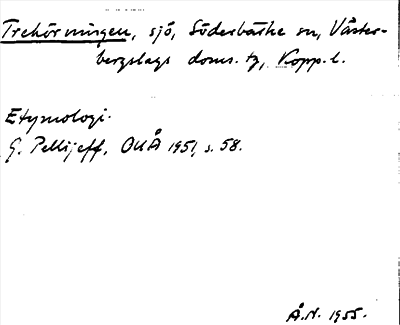 Trehörningen, sjö, Söderbärke sn, Väster-
bergslags doms. tg, Kopp. l.
Etymologi.
G. Pellijeff, OUÅ 1951, s. 58.
Å.N. 1955.